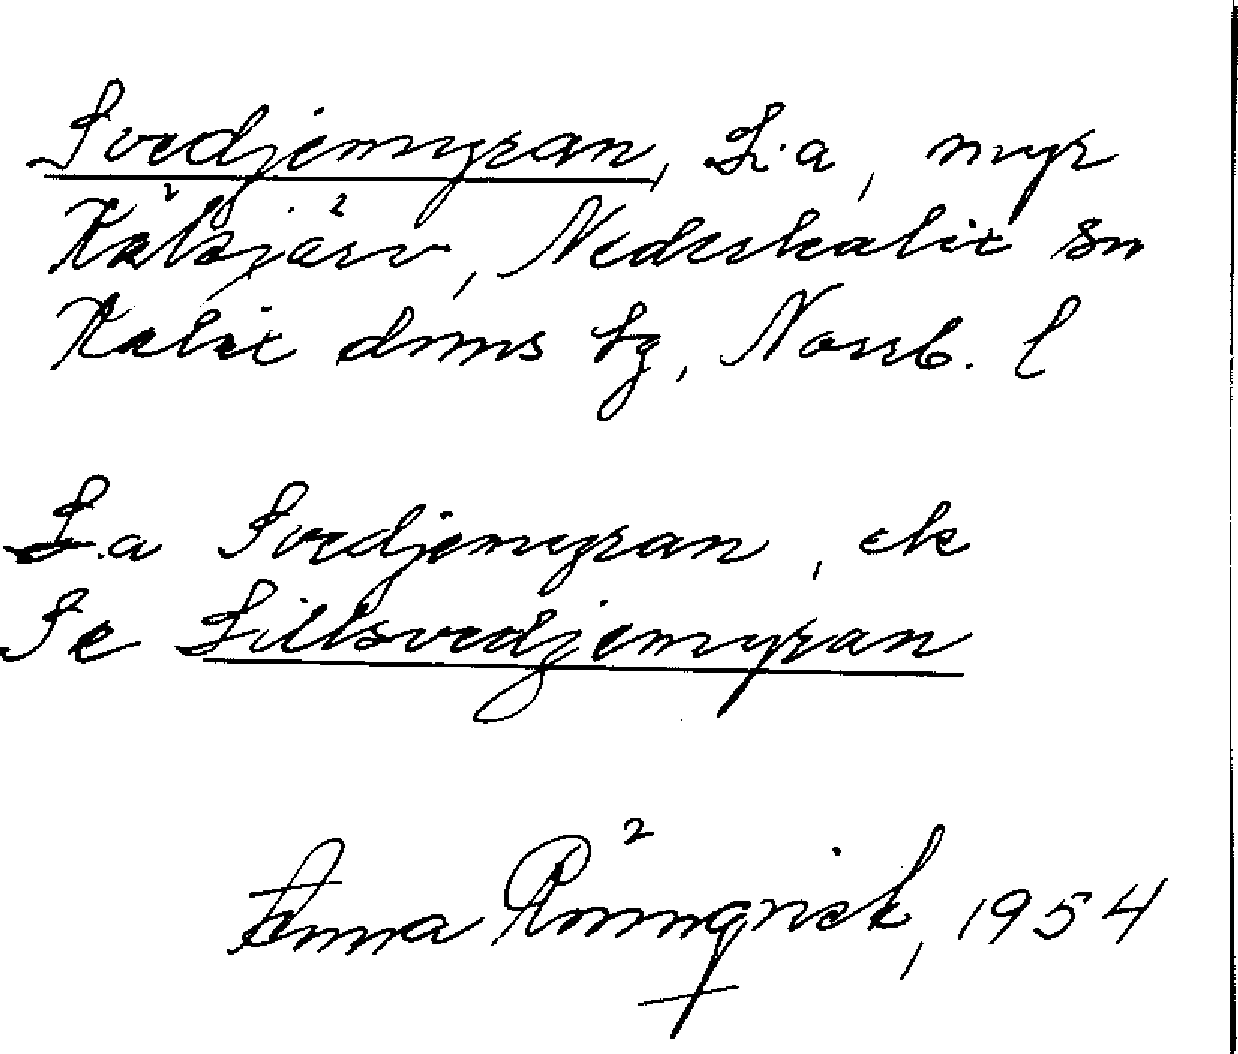 Svedjemyran, L:a, myr
Kälsjärv, Nederkalix sn
Kalix dmns tg, Norrb. l
L:a Svedjemyran, ek
Se Lillsvedjemyran
Anna Rönnqvist, 1954